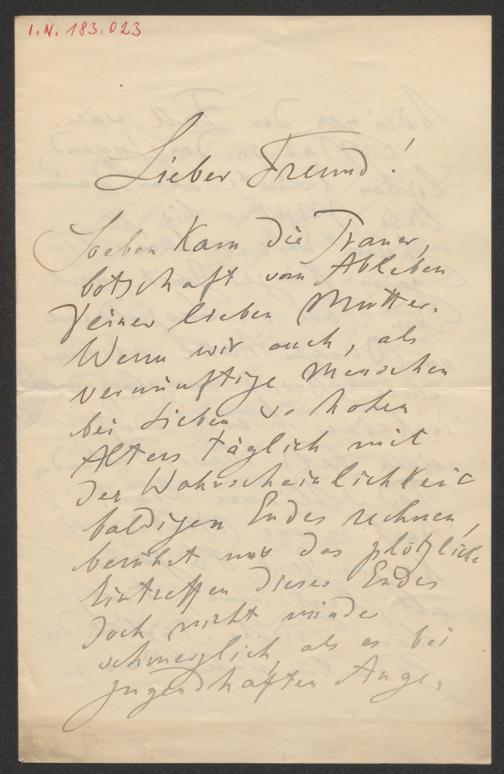 I.N. 183.023
Lieber Freund!
Soeben kam die Trauer,
botschaft vom Ableben
Deiner lieben Mutter.
Wenn wir auch, als
vernünftige Menschen
bei Lieben so hohen
Alters täglich mit
der Wahrscheinlichkeit
baldigen Endes rechnen,
berührt uns das plötzliche
Eintreffen dieses Endes
doch nicht minder
schmerzlich, als es bei
jugendhaften Ange,